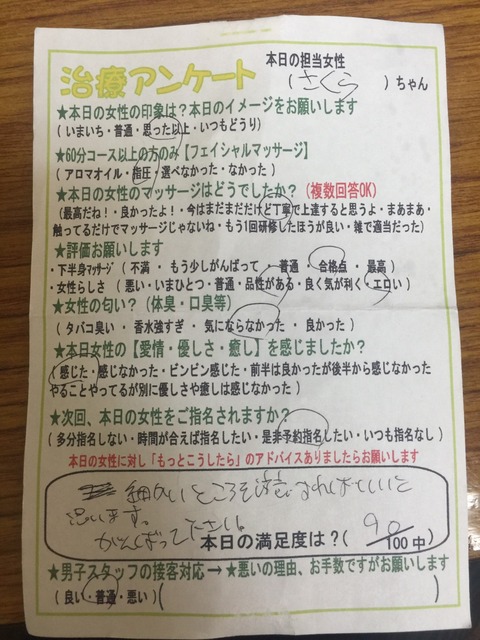 本日の担当女性
治療アンケート (さくら)ちゃん
★本日の女性の印象は?本日のイメージをお願いします
(いまいち・普通・思った以上・いつもどうり)
★60分コース以上の方のみ【フェイシャルマッサージ】
(アロマオイル・指圧・選べなかった・なかった)
★本日の女性のマッサージはどうでしたか?(複数回答OK)
(最高だね!・良かったよ!・今はまだまだだけど丁寧で上達すると思うよ・まあまあ・
触ってるだけでマッサージじゃないね・もう1回研修したほうが良い・雑で適当だった)
★評価お願いします
・下半身マッサージ(不満・もう少しがんばって・普通・合格点・最高)
・女性らしさ(悪い・いまひとつ・普通・品性がある・良く気が利く・エロい)
★女性の匂い?(体臭・口臭等)
(タバコ臭い・香水強すぎ・気にならなかった・良かった)
★本日女性の【愛情・優しさ・癒し】を感じましたか?
(感じた・感じなかった・ビンビン感じた・前半は良かったが後半から感じなかった
やることやってるが別に優しさや癒しは感じなかった)
★次回、本日の女性をご指名されますか?
(多分指名しない・時間が合えば指名したい・是非予約指名したい・いつも指名なし)
本日の女性に対し「もっとこうしたら」のアドバイスありましたらお願いします
細かいところを注意すればいいと
思います。
がんばってください。
本日の満足度は?(90/100中)
★男子スタッフの接客対応→★悪いの理由、お手数ですがお願いします
(良い・普通・悪い)( )